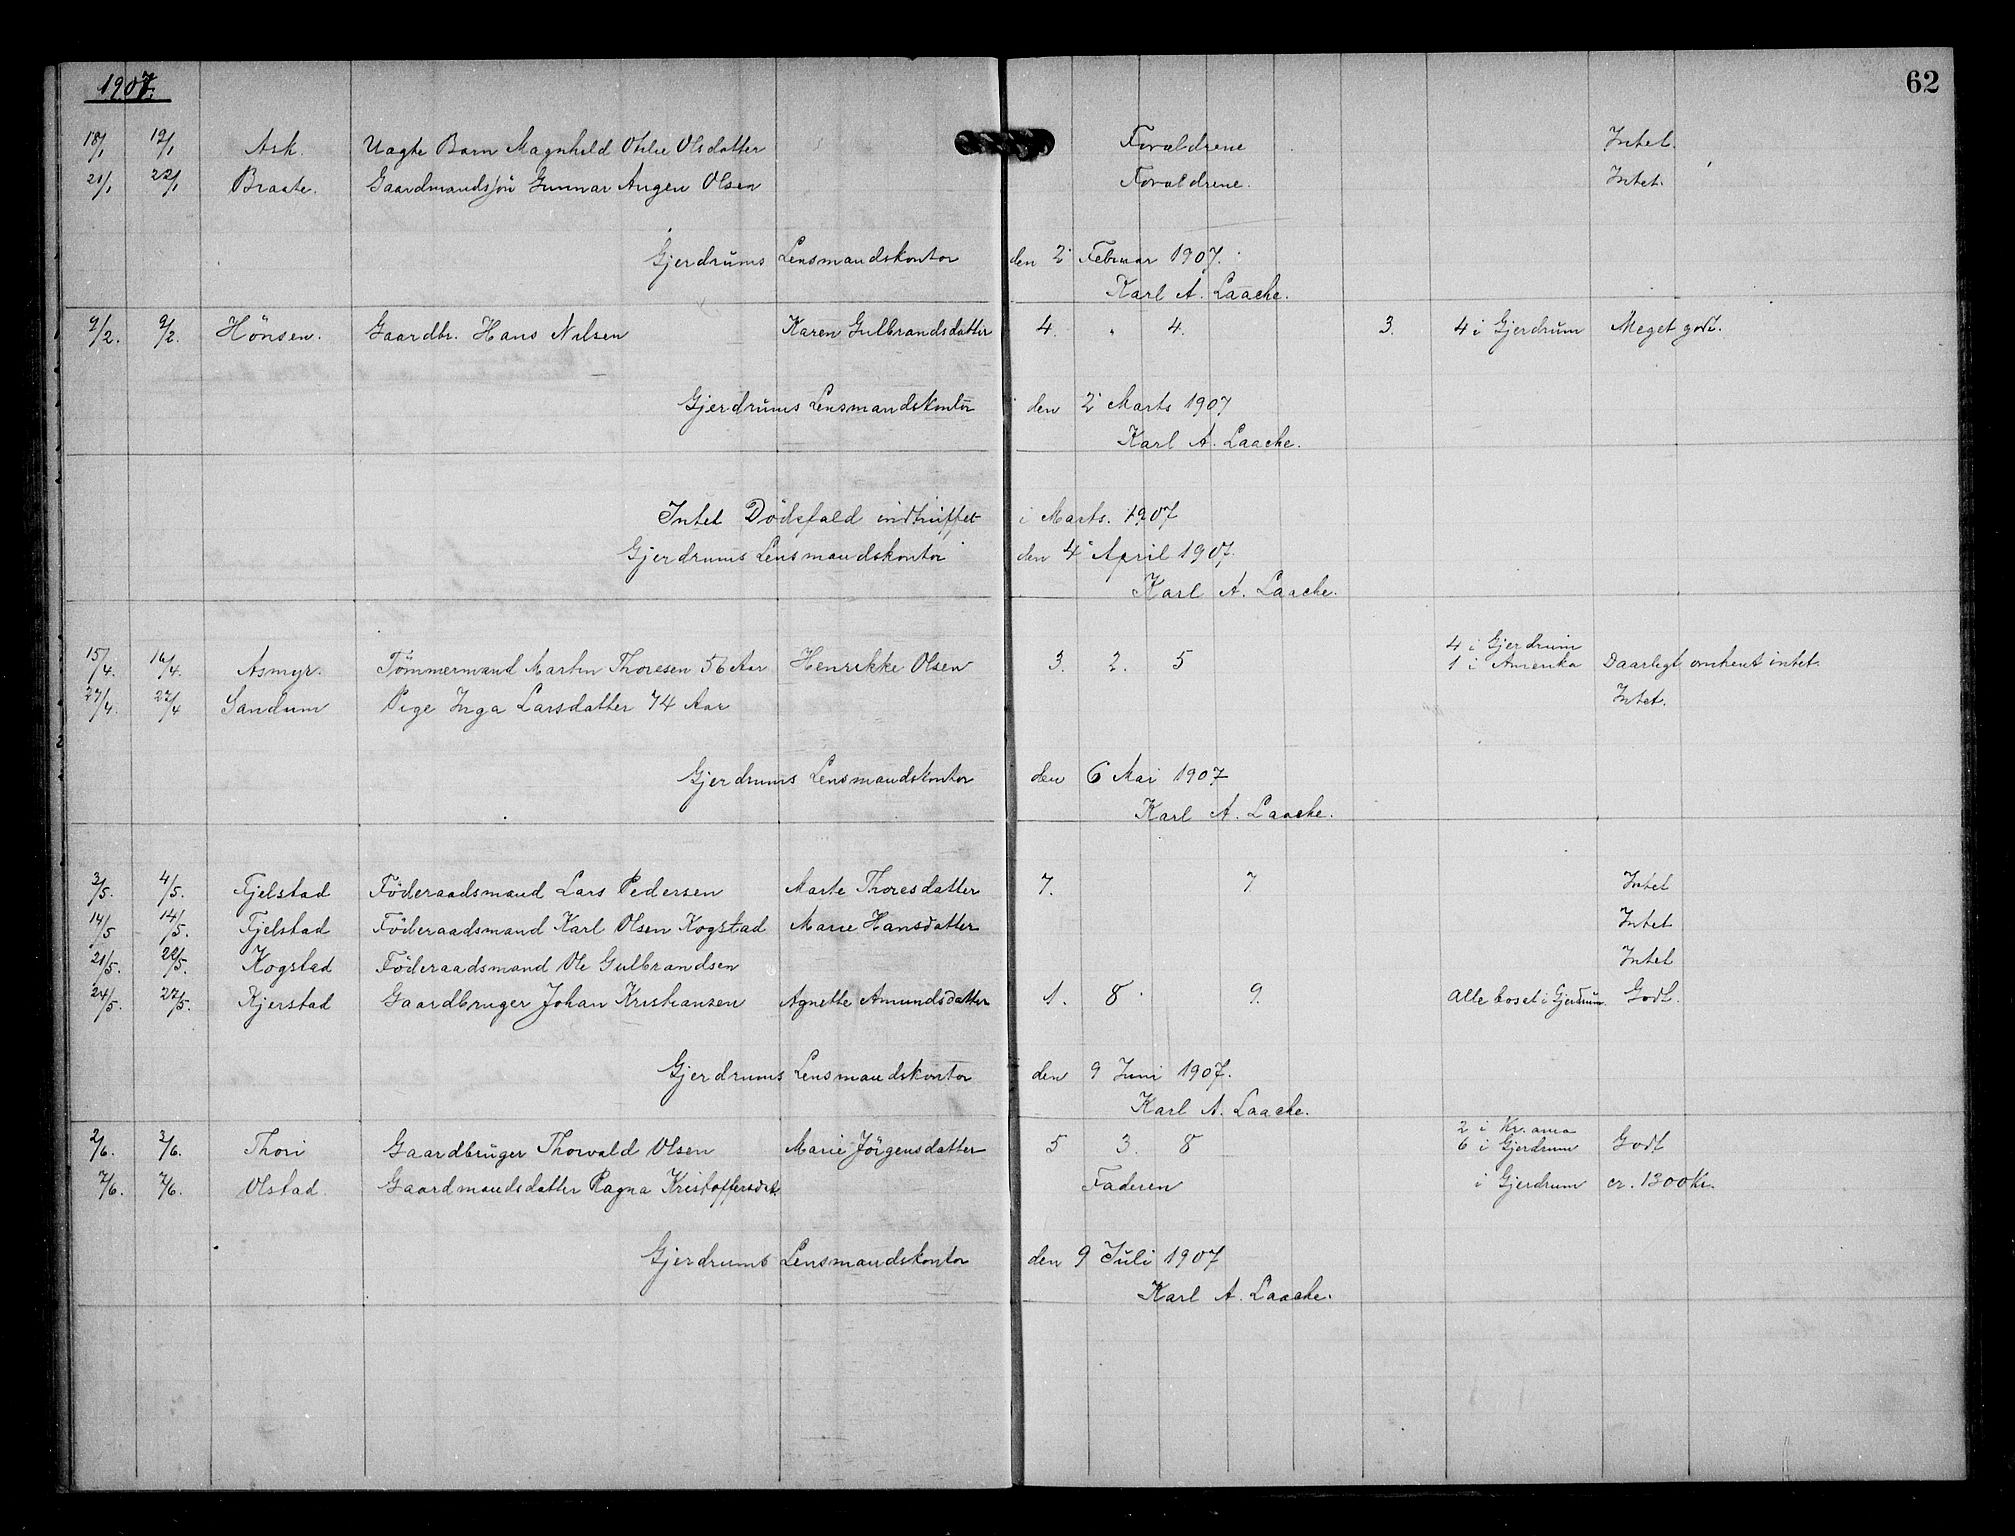 1907.
62
18/1 19/1 Ask. Uagte Barn Magnhild Othilie Olsdatter Forældrene Intet.
21/1 22/1 Braate. Gaardmandssøn Gunnar Angen Olsen Forældrene. Intet.
Gjerdrums Lensmandskontor den 2 Februar 1907.
Karl A. Laache.
9/2. 9/2. Hønsen. Gaardbr. Hans Nilsen Karen Gulbrandsdatter 4. " 4. 3. 4 i Gjerdrum Meget godt.
Gjerdrums Lensmandskontor den 2 Marts 1907
Karl A. Laache.
Intet Dødsfald indtruffet i Marts. 1907
Gjerdrums Lensmandskontor den 4 April 1907.
Karl A. Laache.
4 i Gjerdrum
15/4. 16/4. Asmyr. Tømmermand Martin Thoresen 56 Aar Henrikke Olsen 3. 2. 5 1 i Amerika Daarligt omtrent intet.
27/4. 27/4 Sandum Pige Inga Larsdatter 74 Aar Intet.
Gjerdrums Lensmandskontor den 6 Mai 1907
Karl A. Laache.
3/5. 4/5. Fjelstad Føderaadsmand Lars Pedersen Marte Thoresdatter 7. 7 Intet
14/5 14/5. Fjelstad Føderaadsmand Karl Olsen Kogstad Marie Hansdatter Intet
21/5. 22/5. Kogstad Føderaadsmand Ole Gulbrandsen Intet
24/5. 27/5. Kjerstad Gaardbruger Johan Kristiansen Agnette Amundsdatter 1. 8 9. Alle boset i Gjerdrum. Godt.
Gjerdrums Lensmandskontor den 9 Juni 1907.
Karl A. Laache.
2 i Kr.ania
2/6. 3/6. Thori Gaardbruger Thorvald Olsen Marie Jørgensdatter 5 3. 8 6 i Gjerdrum Godt
7/6. 7/6. Olstad. Gaardmandsdatter Ragna Kristoffersdtr. Faderen i Gjerdrum cr. 1300 Kr.
Gjerdrums Lensmandskontor den 9 Juli 1907
Karl A. Laache.